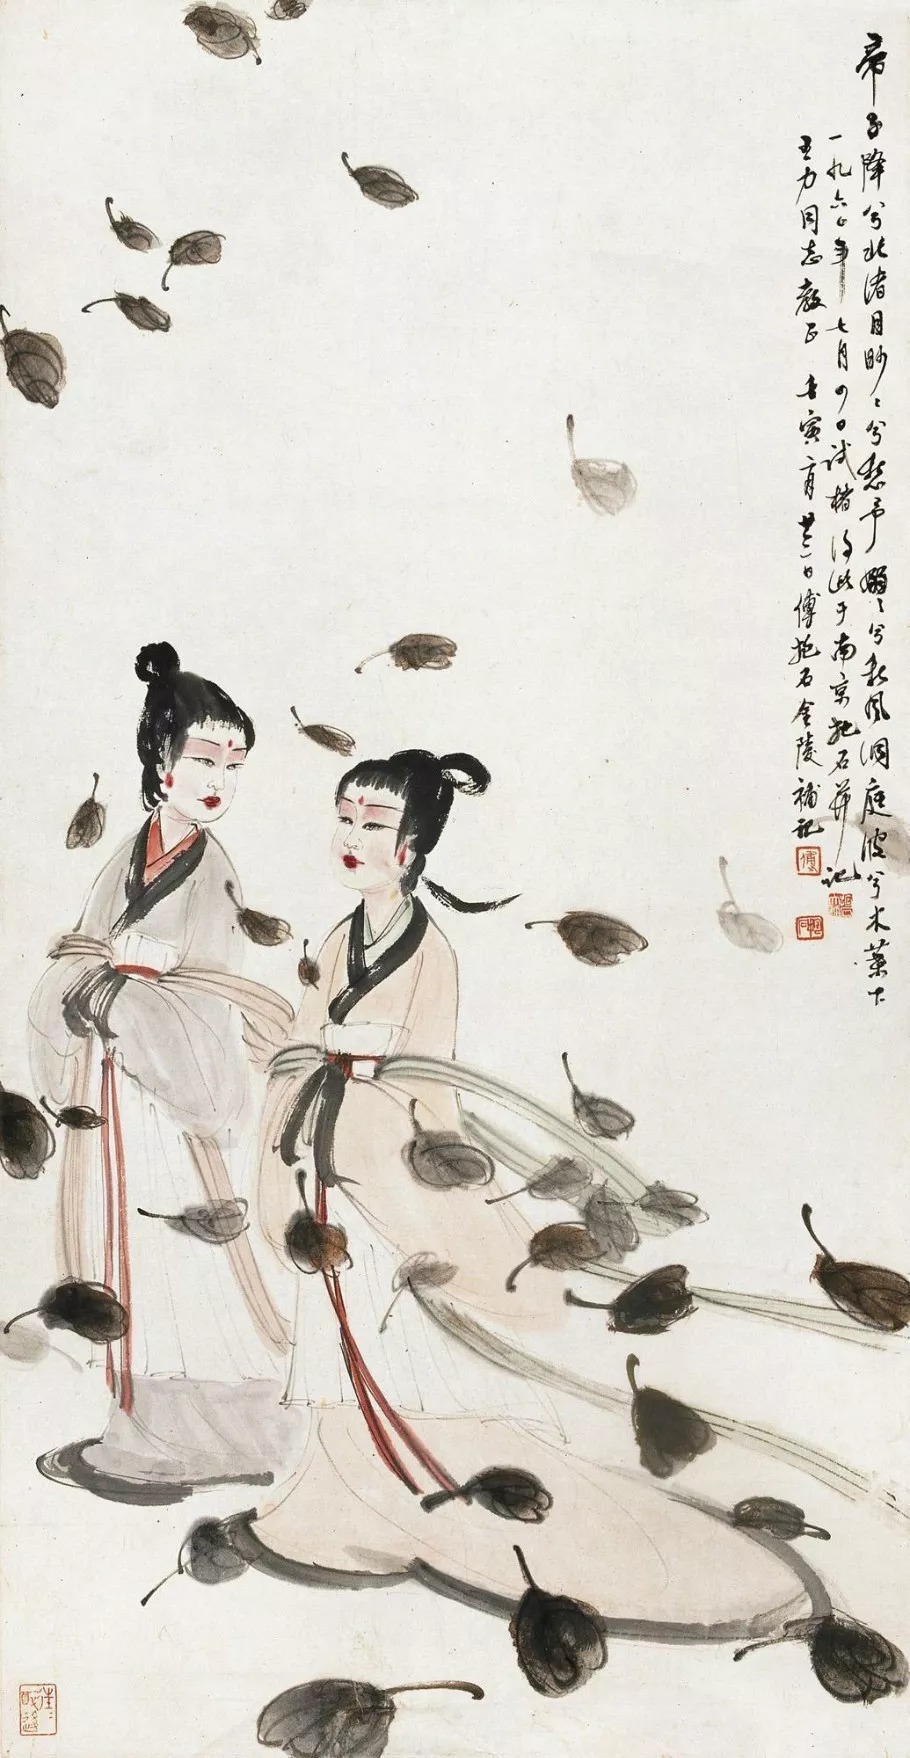 帝子降兮北渚目眇〻兮愁予嫋〻兮秋風洞庭波兮木葉下
一九六〇年七月四日试楮得此于南京抱石并记
王力同志教正 壬寅二月廿三日傅抱石金陵補記
傅